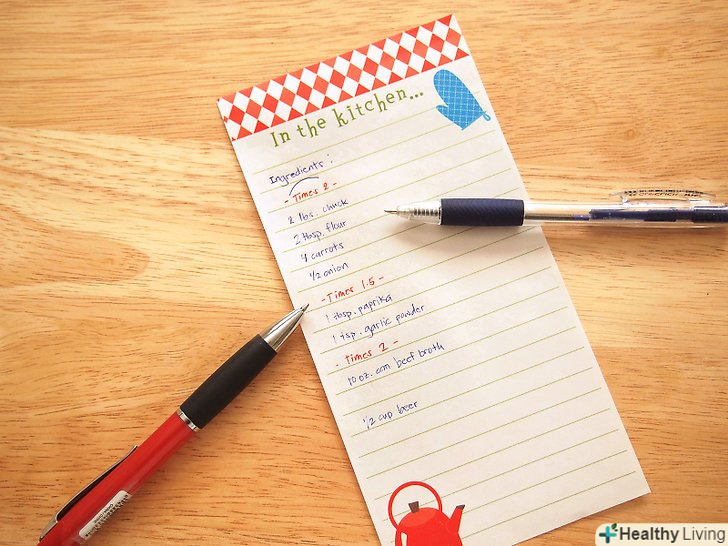 In the kitchen...
Ingredients:
- Times 2 -
2 lbs. chuck
2 tbsp. flour
4 carrots
1/2 onion
- Times 1.5 -
1 tbsp. paprika
1 tsp. garlic powder
- Times 2 -
10 oz. can beef broth
1/2 cup beer
Healthy Living